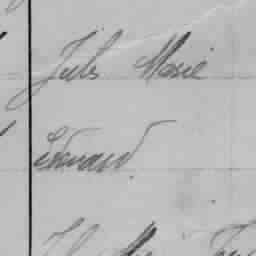 Jules Marie
Edouard.